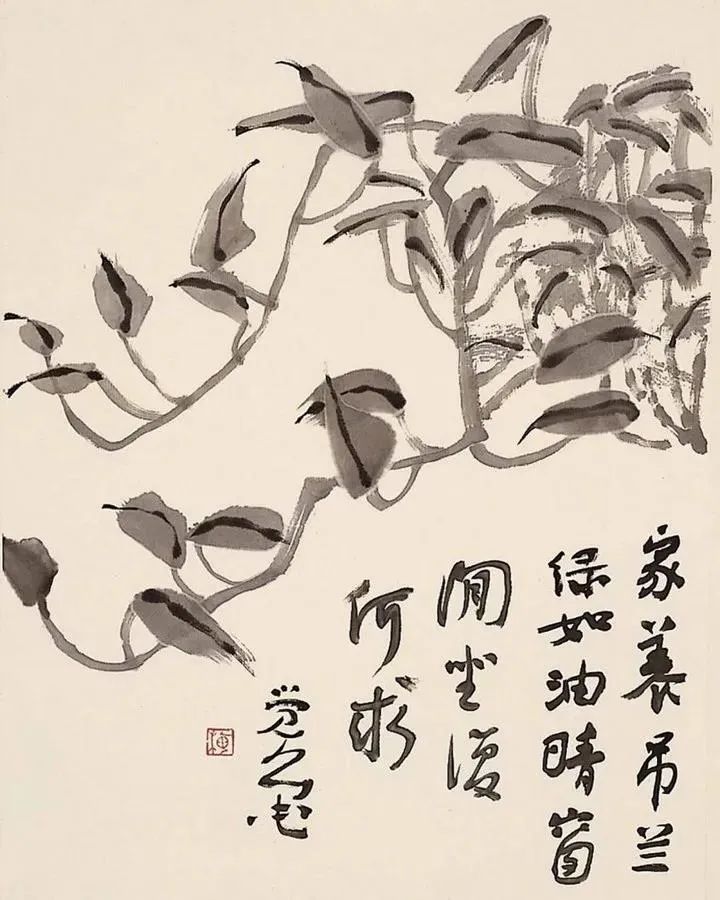 家养吊兰
绿如油晴窗
闲坐復
何求
觉之